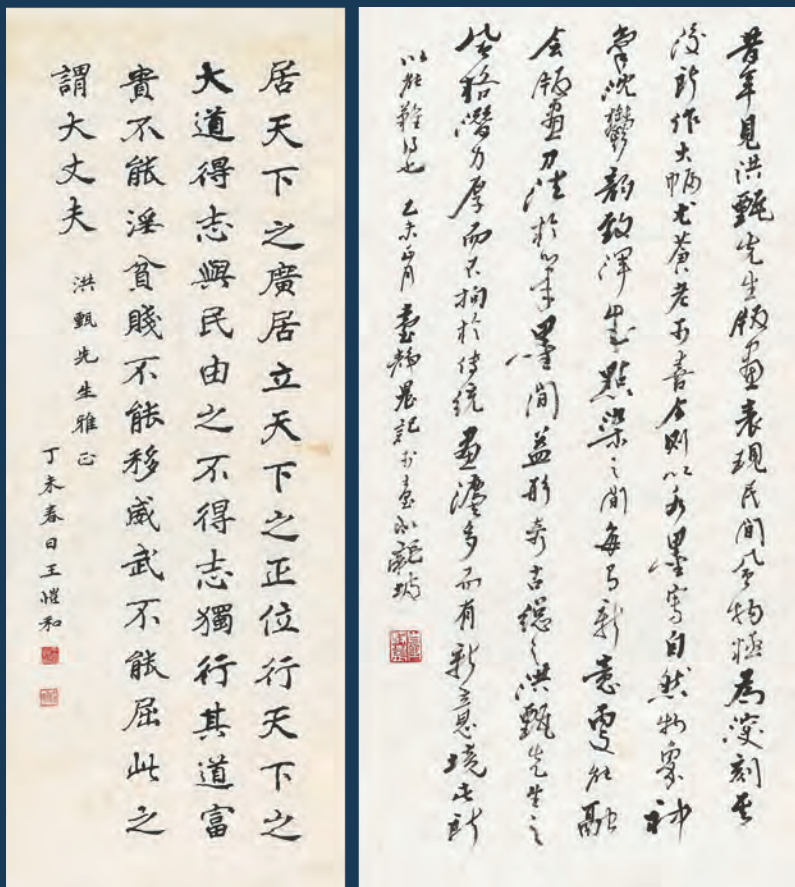 居天下之廣居立天下之正位行天下之
大道得志與民由之不得志獨行其道富
貴不能淫貧賤不能移威武不能屈此之
謂大丈夫
洪甄先生雅正
丁未春日王愷和
昔年見洪甄先生版畫表現民間風物極為深刻其
後所作大幅尤蒼老可喜今則以水墨寫自然物象神
沈鬱韵致渾成點染之間每有新意更能融
会版畫刀法於筆墨間益形奇古總之洪甄先生之
風格潛力厚而不拘於傳統畫多而有新意境此所
以能難得也 乙未月 臺靜農記於臺北龍坡